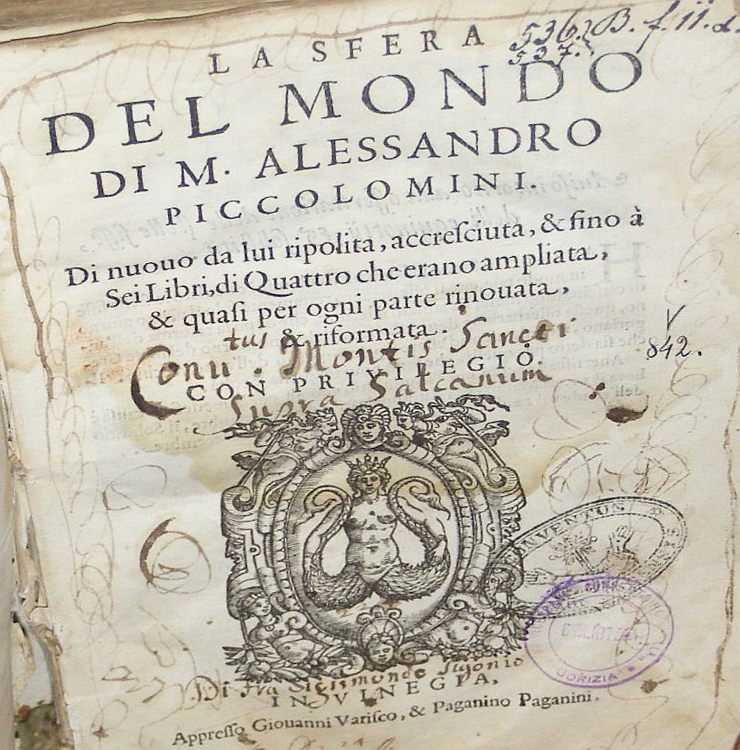 LA SFERA
536. B. f. ii. d.
537.
DEL MONDO
DI M. ALESSANDRO
PICCOLOMINI.
Di nuouo da lui ripolita, accresciuta, & fino à
Sei Libri, di Quattro che erano ampliata,
& quasi per ogni parte rinouata,
& riformata.
Conu.tus Montis Sancti
V
842.
CON PRIVILEGIO.
Supra Salcanum
CONVENTUS
GORIZIA
Di fra Sigismondo Sigonio
IN VINEGIA,
Appresso Giouanni Varisco, & Paganino Paganini.